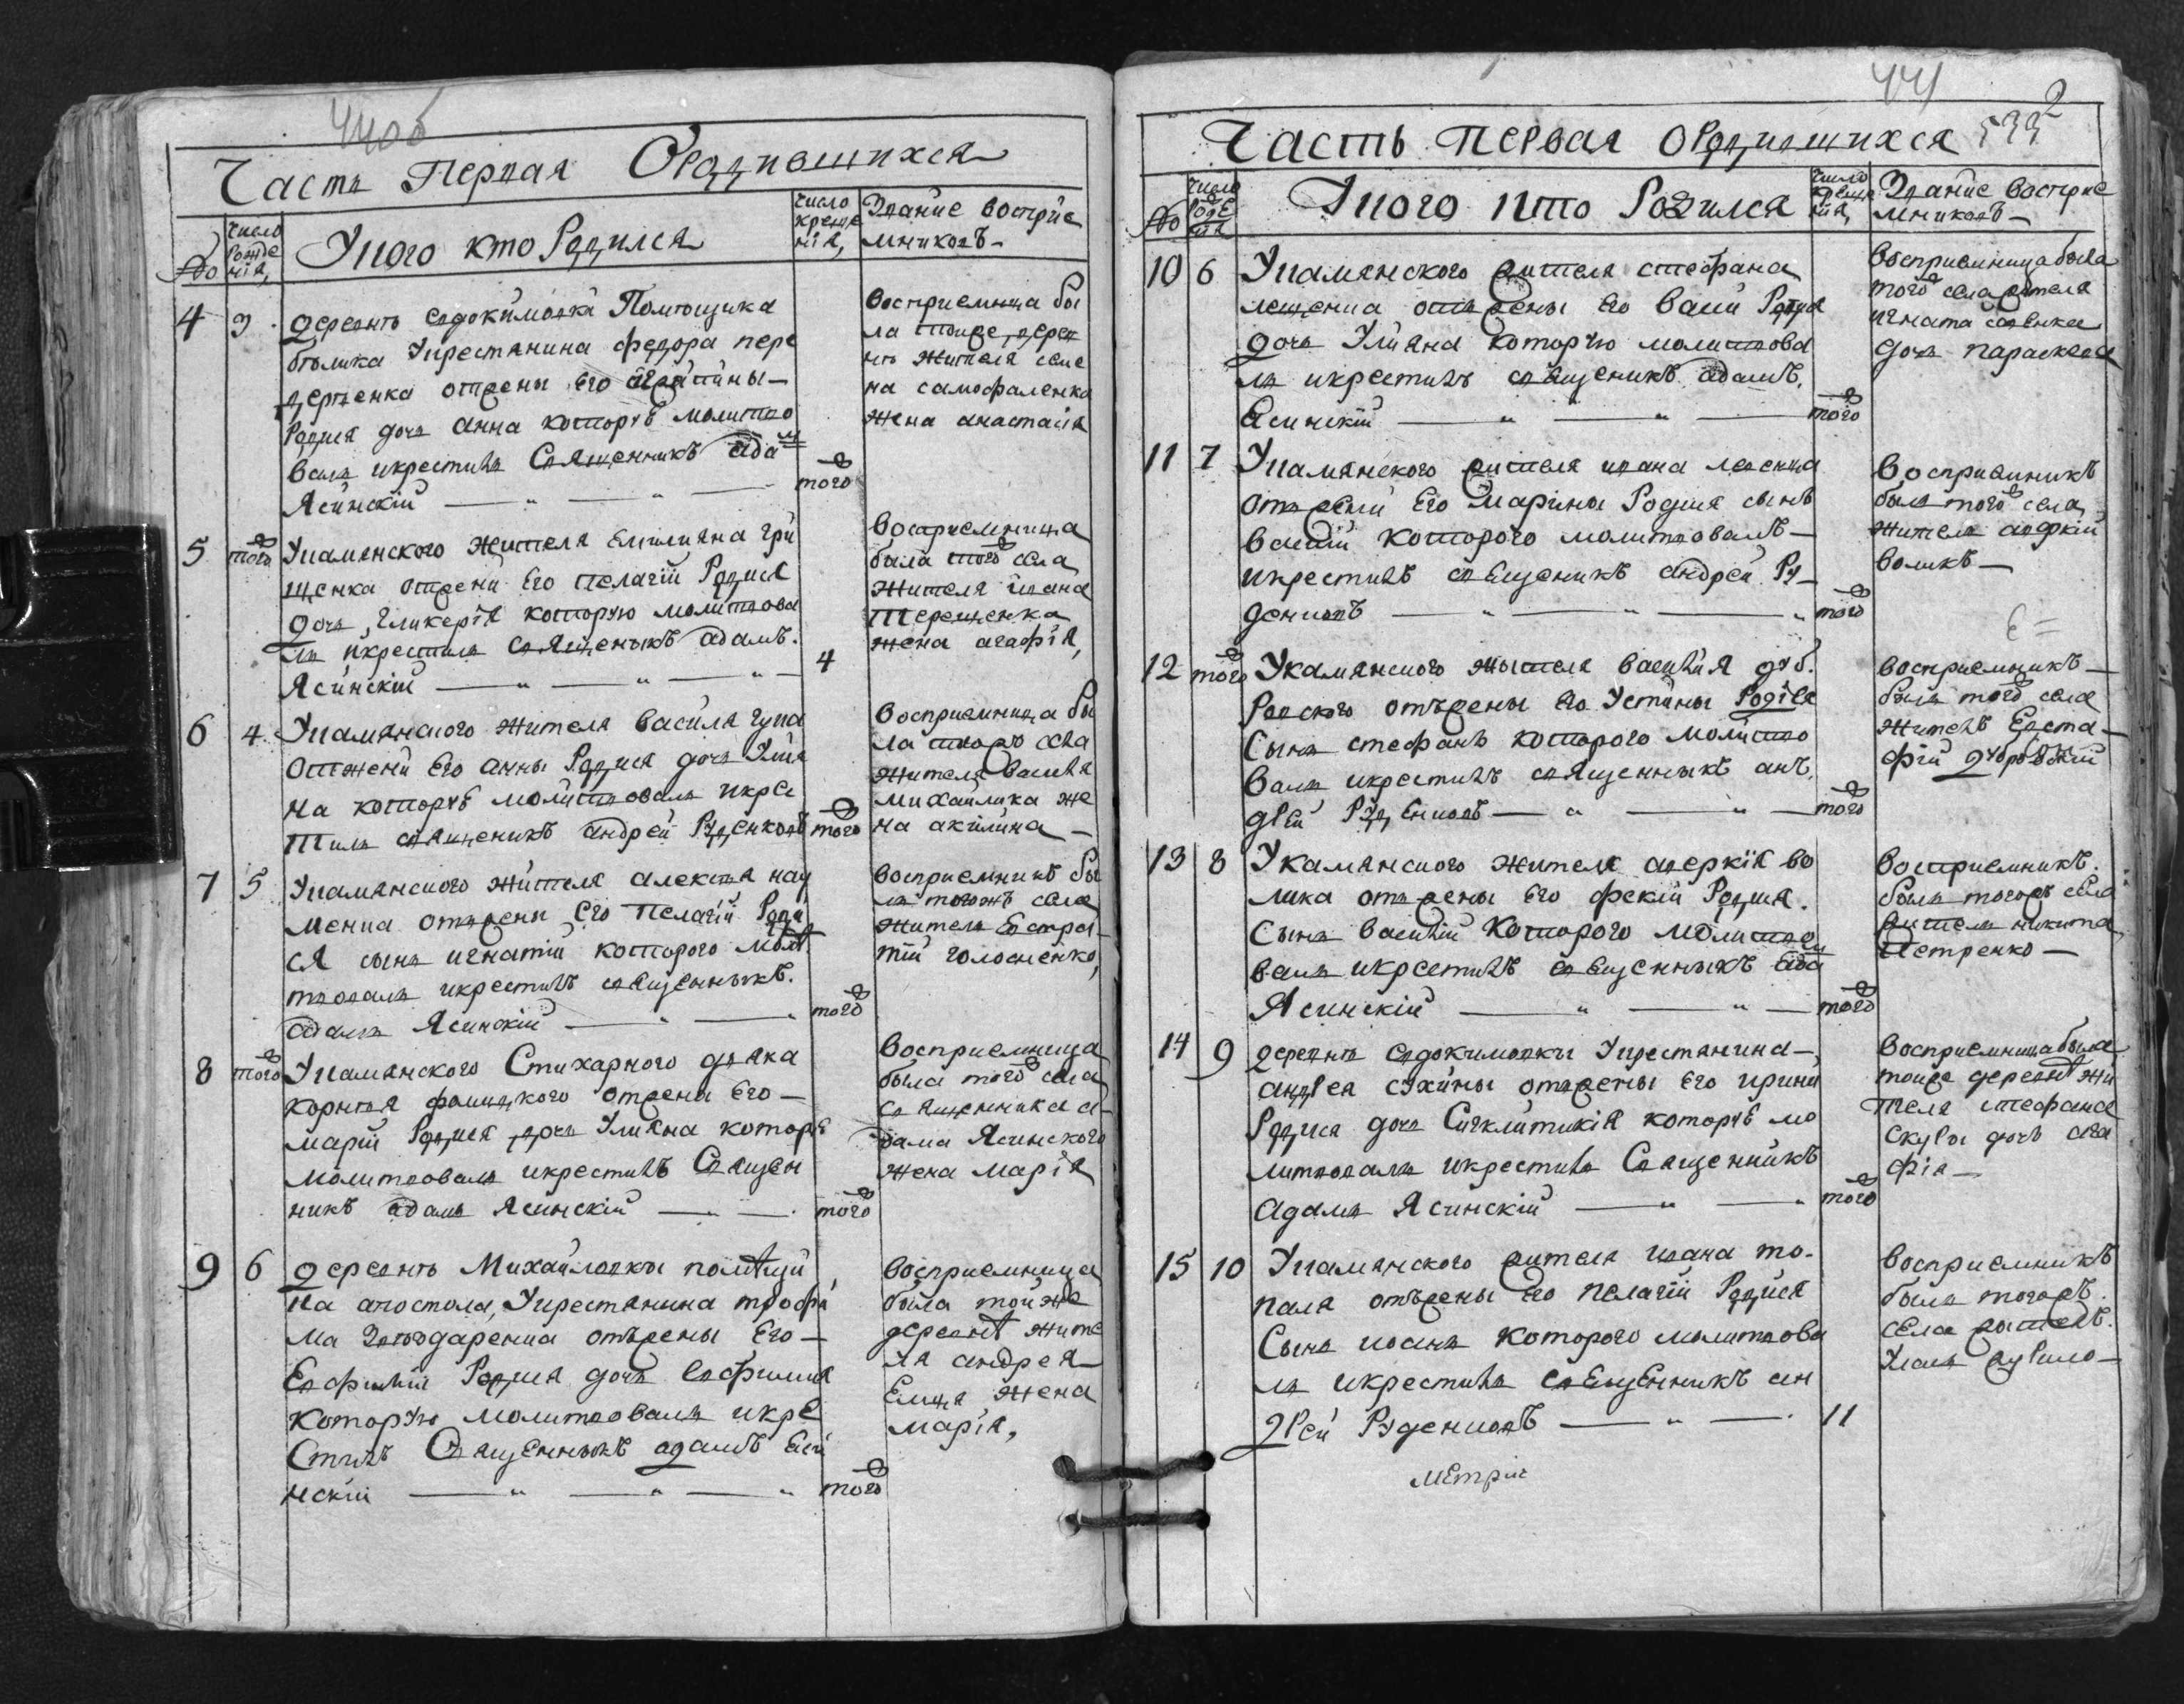 44об
Часть Первая Ородившихся
№
число рожденія,
Укого кто Родился
число крещенія,
Звание воспрїемниковъ
4 3 деревнѣ евдокимовки Помѣщика
Укрестянина федора пере
отжены Его
Родися дочь анна которую молитво
валъ икрестилъ Священникъ адамъ
Ясинскїй того
восприемница бы
ла тоиже дерев
нѣ жителя семе
на самофаленка
жена анастасїя
5 того Укамянского жителя Емилияна гри
щенка отжени Его пелагїи Родися
дочь гликерїя которую молитвова
лъ икрестилъ Священыкъ адамъ
Ясинскїй 4
восприемница
была того села
жителя ивана
Терещенка
жена агафїя,
6 4 Укамянского жителя василя
Отжени Его анны Родися дочь Улия
на которую молитвовалъ икрес
тилъ священикъ андрей Руденковъ того
восприемница бы
ла того села
жителя василя
михайлика же
на акилина
7 5 Укамянского жителя алексѣя нау
менка отжены Его пелагїи Роди
ся сынъ игнатїи которого моли
твовалъ икрестилъ священныкъ
адамъ Ясинскїй того
восприемникъ бы
лъ тогожъ села
житель Евстра
тїй голосненко,
8 того Укамянского Стихарного дяка
корнѣя отжены Его
марїи Родися дочь Улияна котору
молитвовалъ икрестилъ Священ
никъ адамъ Ясинскїй того
восприемница
была того села
священника а
дама Ясинского
жена марїя
9 6 деревнѣ Михайловки помѣщи
ка апостола, Укрестянина трофи
ма отжены Его
Евфимїи Родися дочь Евфимия
которую молитвовалъ икре
стилъ Священныкъ адамъ Яси
нскїй того
восприемница
была тойже
деревнѣ жите
ля андрея
жена
марїя,
44
2
Часть первая Ородившихся
№
число рожденія
Укого кто Родился
число крещенія,
Звание восприемниковъ
10 6 Укамянского жителя стефана
лещенка отжены Его Родися
дочь Улияна которую молитвова
лъ икрестилъ священикъ адамъ
Ясинскїй того
восприемница была
того села жителя
игната
дочь параскева
11 7 Укамянского жителя ивана
отжены Его Марины Родися сынъ
василїй которого молитвовалъ
икрестилъ священикъ андрей Ру
денковъ того
восприемникъ
былъ того села
житель аверкїй
воликъ
12 того Укамянского жытеля василия дуб
ровского отъжены Его Устины Родися
Сынъ стефанъ которого молитво
валъ икрестилъ священныкъ анъ
дрей Руденковъ того
восприемникъ
былъ того села
житель Евста
фїй дубровскїй
13 8 Укамянского жителя аверкїя во
лика отжены Его Родися
Сынъ василїй которого молитво
валъ икрестилъ священныкъ адам
Ясинскїй того
восприемникъ
былъ тогожъ села
житель никита
Петренко
14 9 деревнѣ евдокимовки Укрестянина
андрея сухины отжены Его ирини
Родися дочь Сигклитикїя которую мо
литвовалъ икрестилъ Священникъ
адамъ Ясинскїй того
восприемница была
тоиже деревнѣ жи
теля стефана
скубы дочь ага
фїя
15 10 Укамянского жителя ивана то
пала отъжены Его пелагїи Родися
Сынъ иоанъ которого молитвова
лъ икрестилъ священникъ ан
дрей Руденковъ 11
восприемникъ
былъ тогожъ
села житель